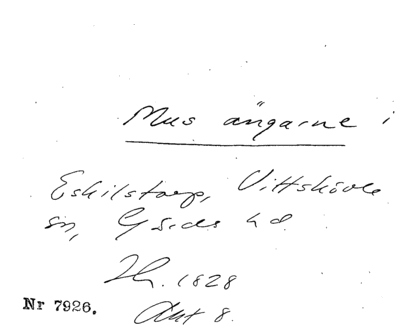 Mus ängarne i
Eskilstorp, Vittskövle
sn, Gärds hd.
1828
Nr 7926. Akt 8.